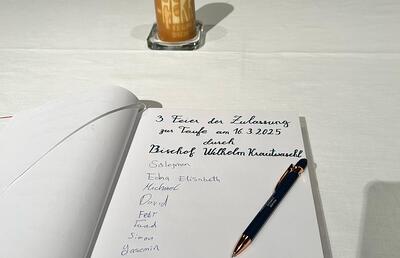 3 Feier der Zulassung
zur Taufe am 16.3.2025
durch
Bischof Wilhelm Krautwaschl
Solayman
Edna Elisabeth
Michael
David
Fuad
Simon
Yasemin